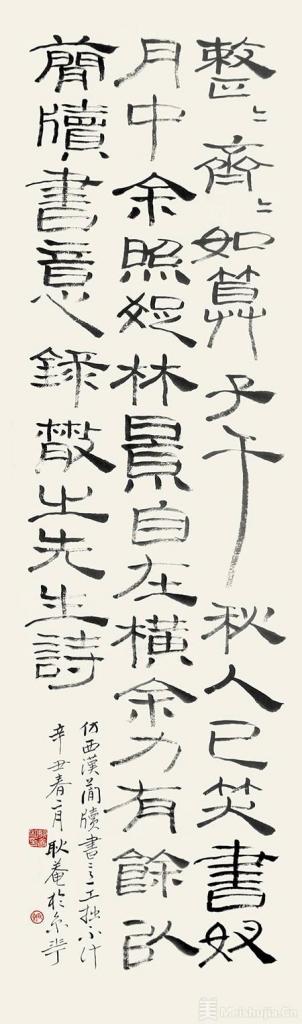 整〻齊〻如算子千秋人已笑書奴
月中余照林景自在橫余力有餘以
簡牘書意錄散之先生詩
仿西漢簡牘書之工拙不計
辛丑春二月耿庵於京華
美 Meishujia.Cn